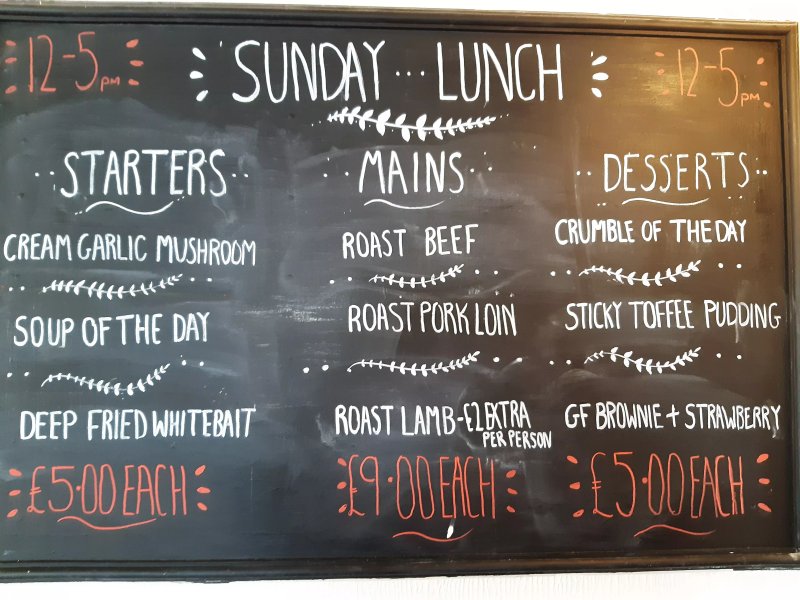 12-5pm
SUNDAY... LUNCH
12-5pm
STARTERS
CREAM GARLIC MUSHROOM
SOUP OF THE DAY
DEEP FRIED WHITEBAIT
£5.00 EACH
MAINS
ROAST BEEF
ROAST PORK LOIN
ROAST LAMB-£2 EXTRA
PER PERSON
£9.00 EACH
DESSERTS
CRUMBLE OF THE DAY
STICKY TOFFEE PUDDING
GF BROWNIE + STRAWBERRY
£5.00 EACH